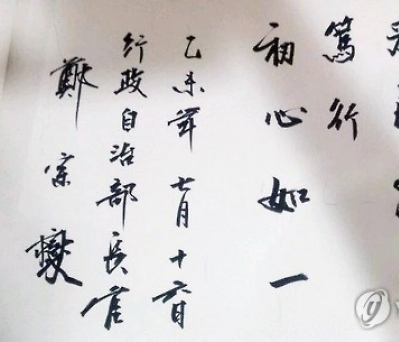 篤行
初心如一
乙未年 七月十六日
行政自治部長官
鄭宗燮